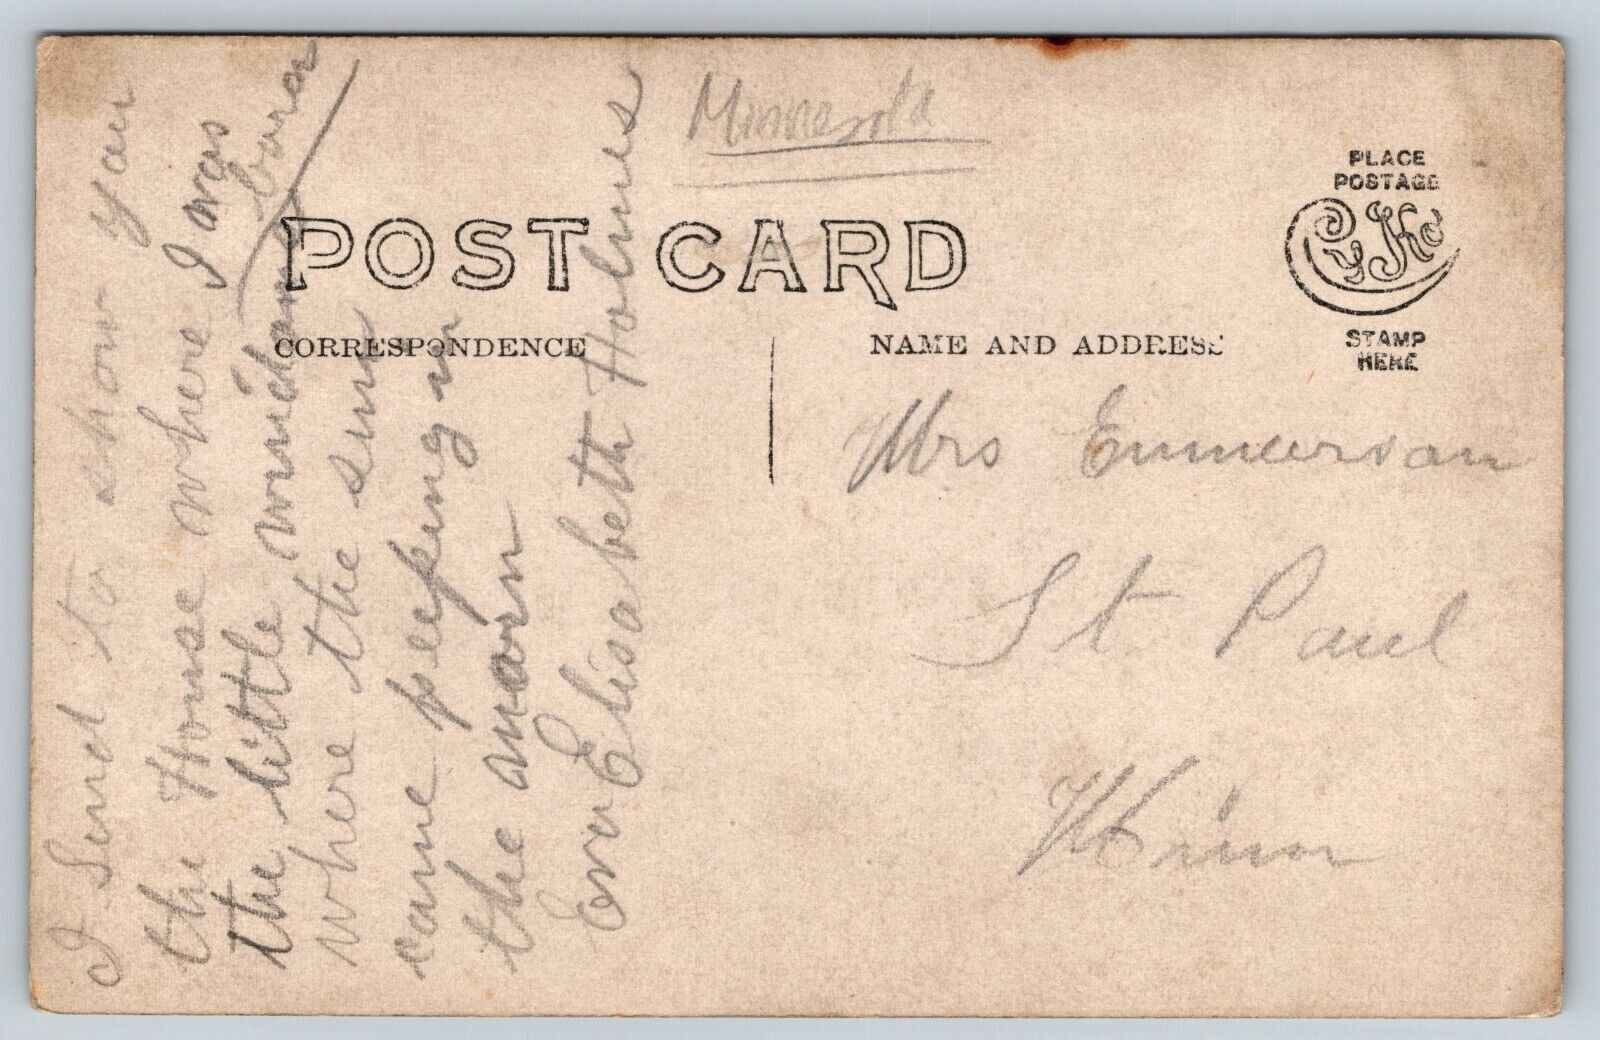 Minnesota
POST CARD
CORRESPONDENCE
NAME AND ADDRESS
PLACE
POSTAGE
CYKO
STAMP
HERE
I Send to show you
the House where I was
born
the little window
where the sun
came peeping in
the marn
Elisabeth Holmes
Mrs Emmerson
St Paul
Minn